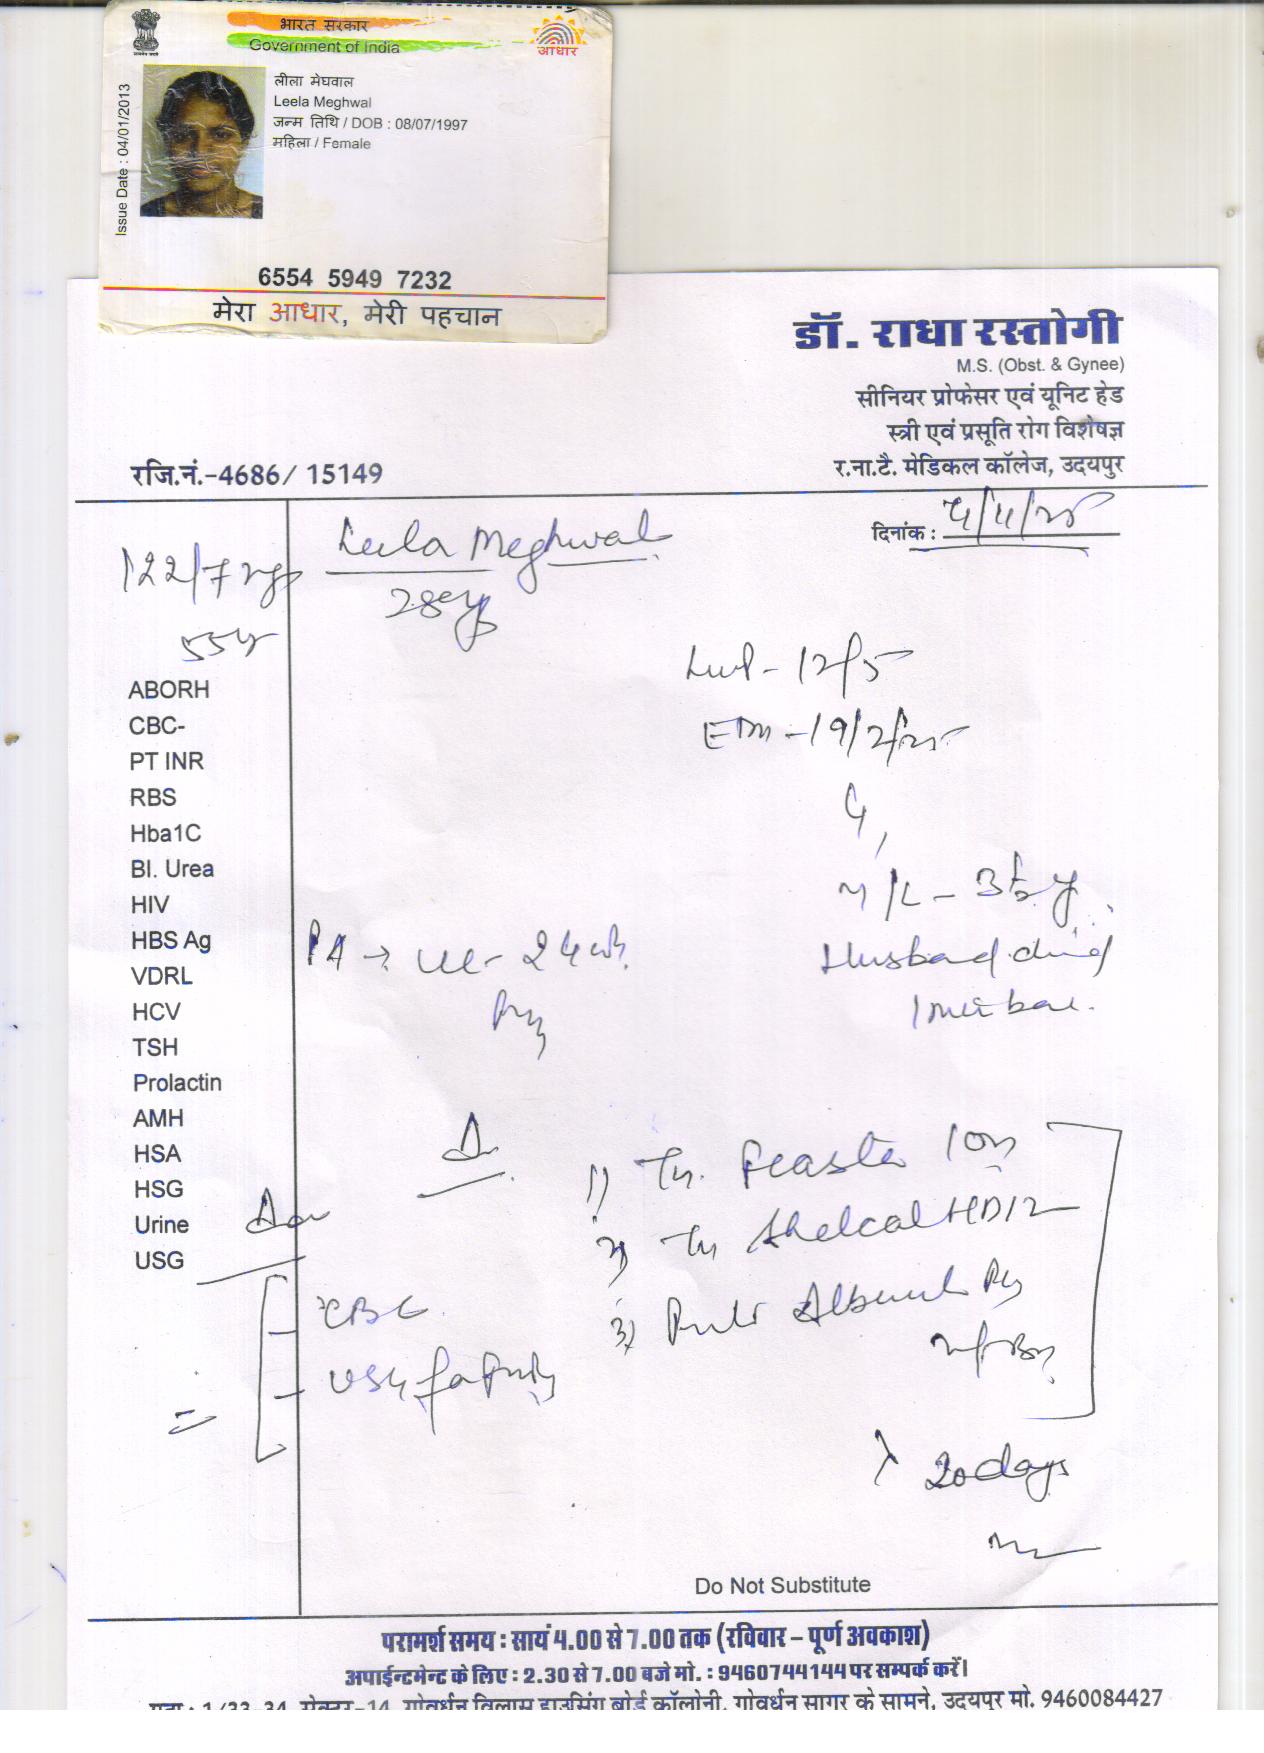 भारत सरकार
Government of India
आधार
Issue Date : 04/01/2013
लीला मेघवाल
Leela Meghwal
जन्म तिथि / DOB : 08/07/1997
महिला / Female
6554 5949 7232
मेरा आधार, मेरी पहचान
डॉ. राधा रस्तोगी
M.S. (Obst. & Gynee)
सीनियर प्रोफेसर एवं यूनिट हेड
स्त्री एवं प्रसूति रोग विशेषज्ञ
र.ना.टै. मेडिकल कॉलेज, उदयपुर
रजि.नं.-4686/ 15149
दिनांक :
Leela Meghwal
122/7
ABORH
CBC-
PT INR
RBS
Hba1C
Bl. Urea
HIV
HBS Ag
VDRL
HCV
TSH
Prolactin
AMH
HSA
HSG
Urine
USG
12/5
19/2/25
M/L - 3
Husband
PA → 24
1)
2) Shelcal HD 12
3)
CBC
USG
20 days
Do Not Substitute
परामर्श समय : सायं 4.00 से 7.00 तक (रविवार – पूर्ण अवकाश)
अपाईन्टमेन्ट के लिए : 2.30 से 7.00 बजे मो. : 9460744144 पर सम्पर्क करें।
पता : 1/33-34, सेक्टर-14, गोवर्धन विलास हाउसिंग बोर्ड कॉलोनी, गोवर्धन सागर के सामने, उदयपुर मो. 9460084427